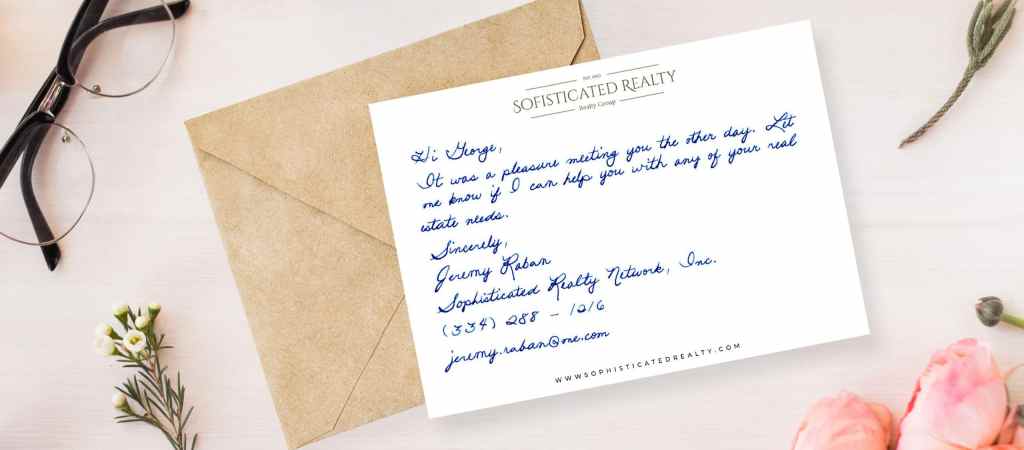 SOFISTICATED REALTY
Realty Group
Hi George,
It was a pleasure meeting you the other day. Let
me know if I can help you with any of your real
estate needs.
Sincerely,
Jeremy Raban
Sophisticated Realty Network, Inc.
(334) 288 - 1216
jeremy.raban@me.com
WWWSOPHISTICATEDREALTY.COM